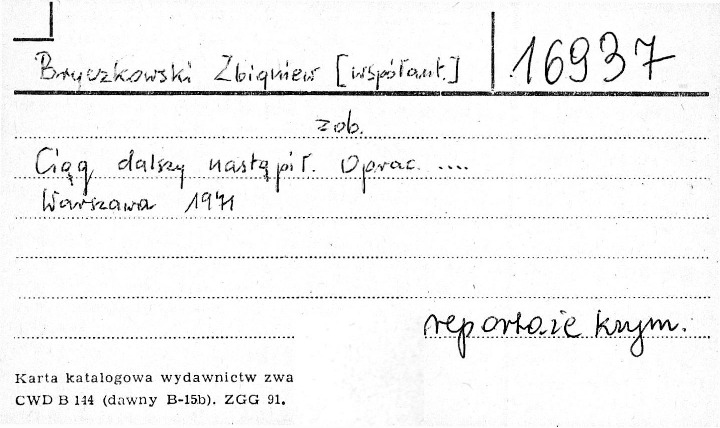 Bryczkowski Zbigniew [współaut.] 16937
zob.
Ciąg dalszy nastąpił. Oprac. ....
Warszawa 1971
reportaże krym.
Karta katalogowa wydawnictw zwa
CWD B 144 (dawny B-15b). ZGG 91.